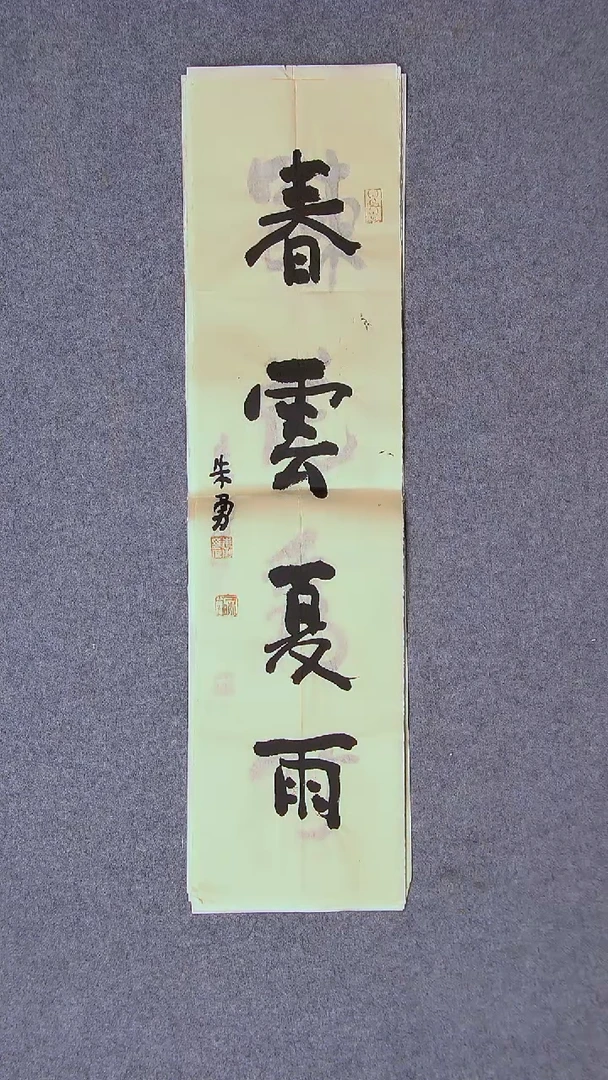 春雲夏雨
朱勇